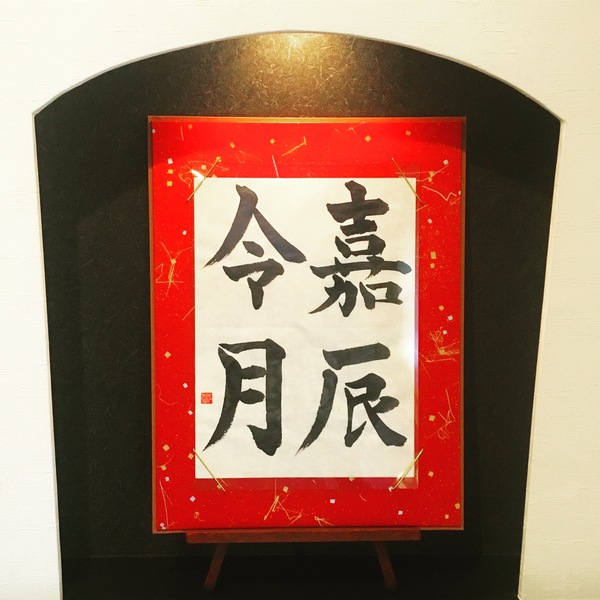 嘉辰
令月